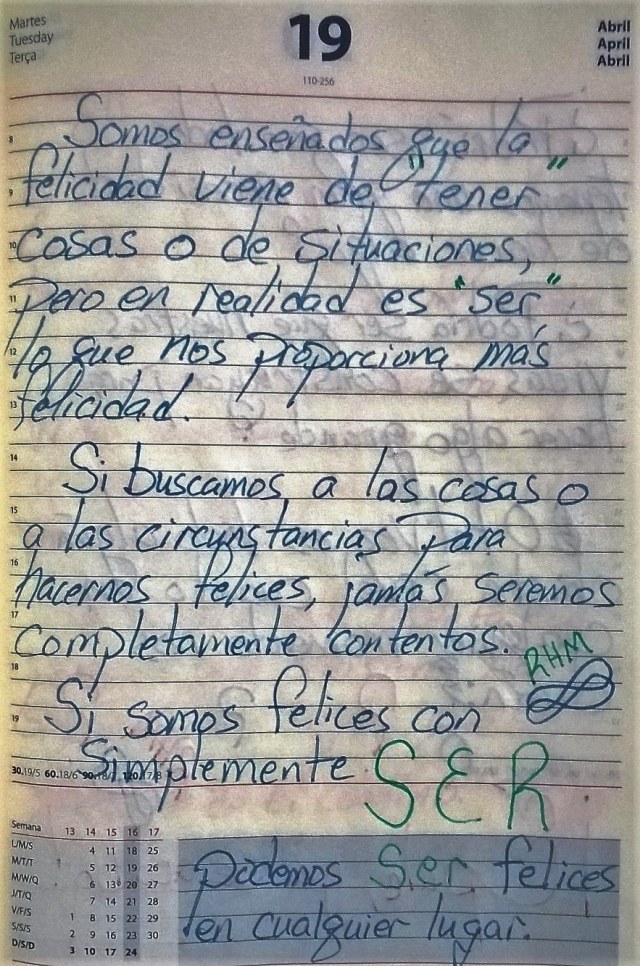 Martes
Tuesday
Terça
19
110-256
Abril
April
Abril
8
Somos enseñados que la
9
felicidad viene de "tener"
10
cosas o de situaciones,
11
pero en realidad es "ser"
12
lo que nos proporciona más
13
felicidad.
14
Si buscamos a las cosas o
15
a las circunstancias para
16
hacernos felices, jamás seremos
17
completamente contentos.
RHM
18
Si somos felices con
19
Simplemente SER
30.19/5 60.18/6 90.18/7 120.17/8
Semana 13 14 15 16 17
L/M/S 4 11 18 25
M/T/T 5 12 19 26
M/W/Q 6 13 20 27
J/T/Q 7 14 21 28
V/F/S 1 8 15 22 29
S/S/S 2 9 16 23 30
D/S/D 3 10 17 24
podemos ser felices
en cualquier lugar.